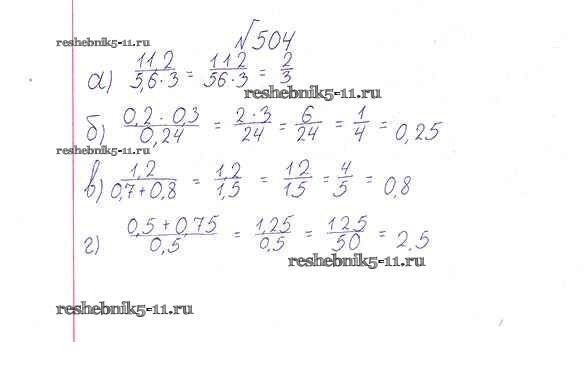 №504
reshebnik5-11.ru
а) 11,2/5,6·3 = 112/56·3 = 2/3
reshebnik5-11.ru
б) 0,2·0,3/0,24 = 2·3/24 = 6/24 = 1/4 = 0,25
reshebnik5-11.ru
в) 1,2/0,7+0,8 = 1,2/1,5 = 12/15 = 4/5 = 0,8
г) 0,5+0,75/0,5 = 1,25/0,5 = 125/50 = 2,5
reshebnik5-11.ru
reshebnik5-11.ru